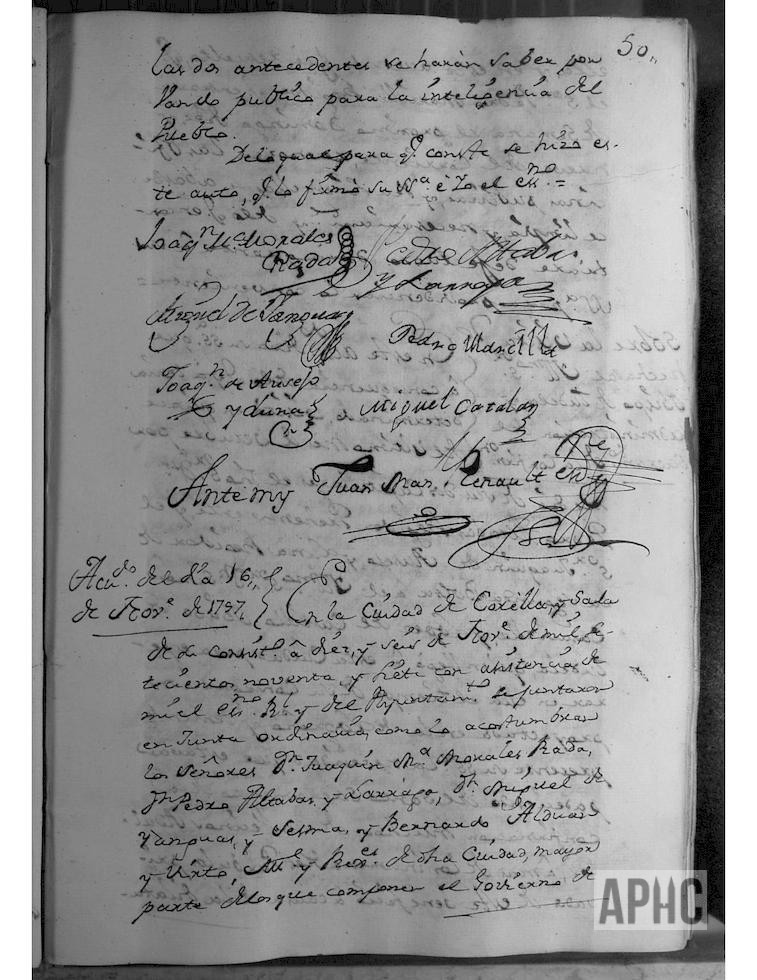 50,,
las dos antecedentes se harán saber por
Vando publico para la inteligencia del
Pueblo.
De lo qual para q.e conste se hizo es-
te auto, q.e lo firmó su SSa. e Yo el essno. =
Joaqn. Ma. Morales
Rada
Pedro Altabas
y Larraga
Miguel de Yanguas
Pedro Mancilla
Joaqn. de
y Luna
Miguel Catalan
Antemy Juan Man. Renault
Acu.do del dia 16,,
de Nov.e de 1797,
En la Ciudad de Corella, y Sala
de su consist.l â diez, y seis de Nov.e de mil, se-
tecientos noventa, y siete con asistencia de
mi el essno. Rl. y del Ayuntam.to se juntaron
en Junta ordinaria, como lo acostumbran
los Señores Dn. Juaquin Ma. Morales Rada,
Dn. Pedro Altabas, y Larraga, Dn. Miguel de
Yanguas, y Sesma, y Bernardo Alduan
y Virto, All.e y Rex.es de dha Ciudad, mayor
parte de los que componen el Govierno de
APHC